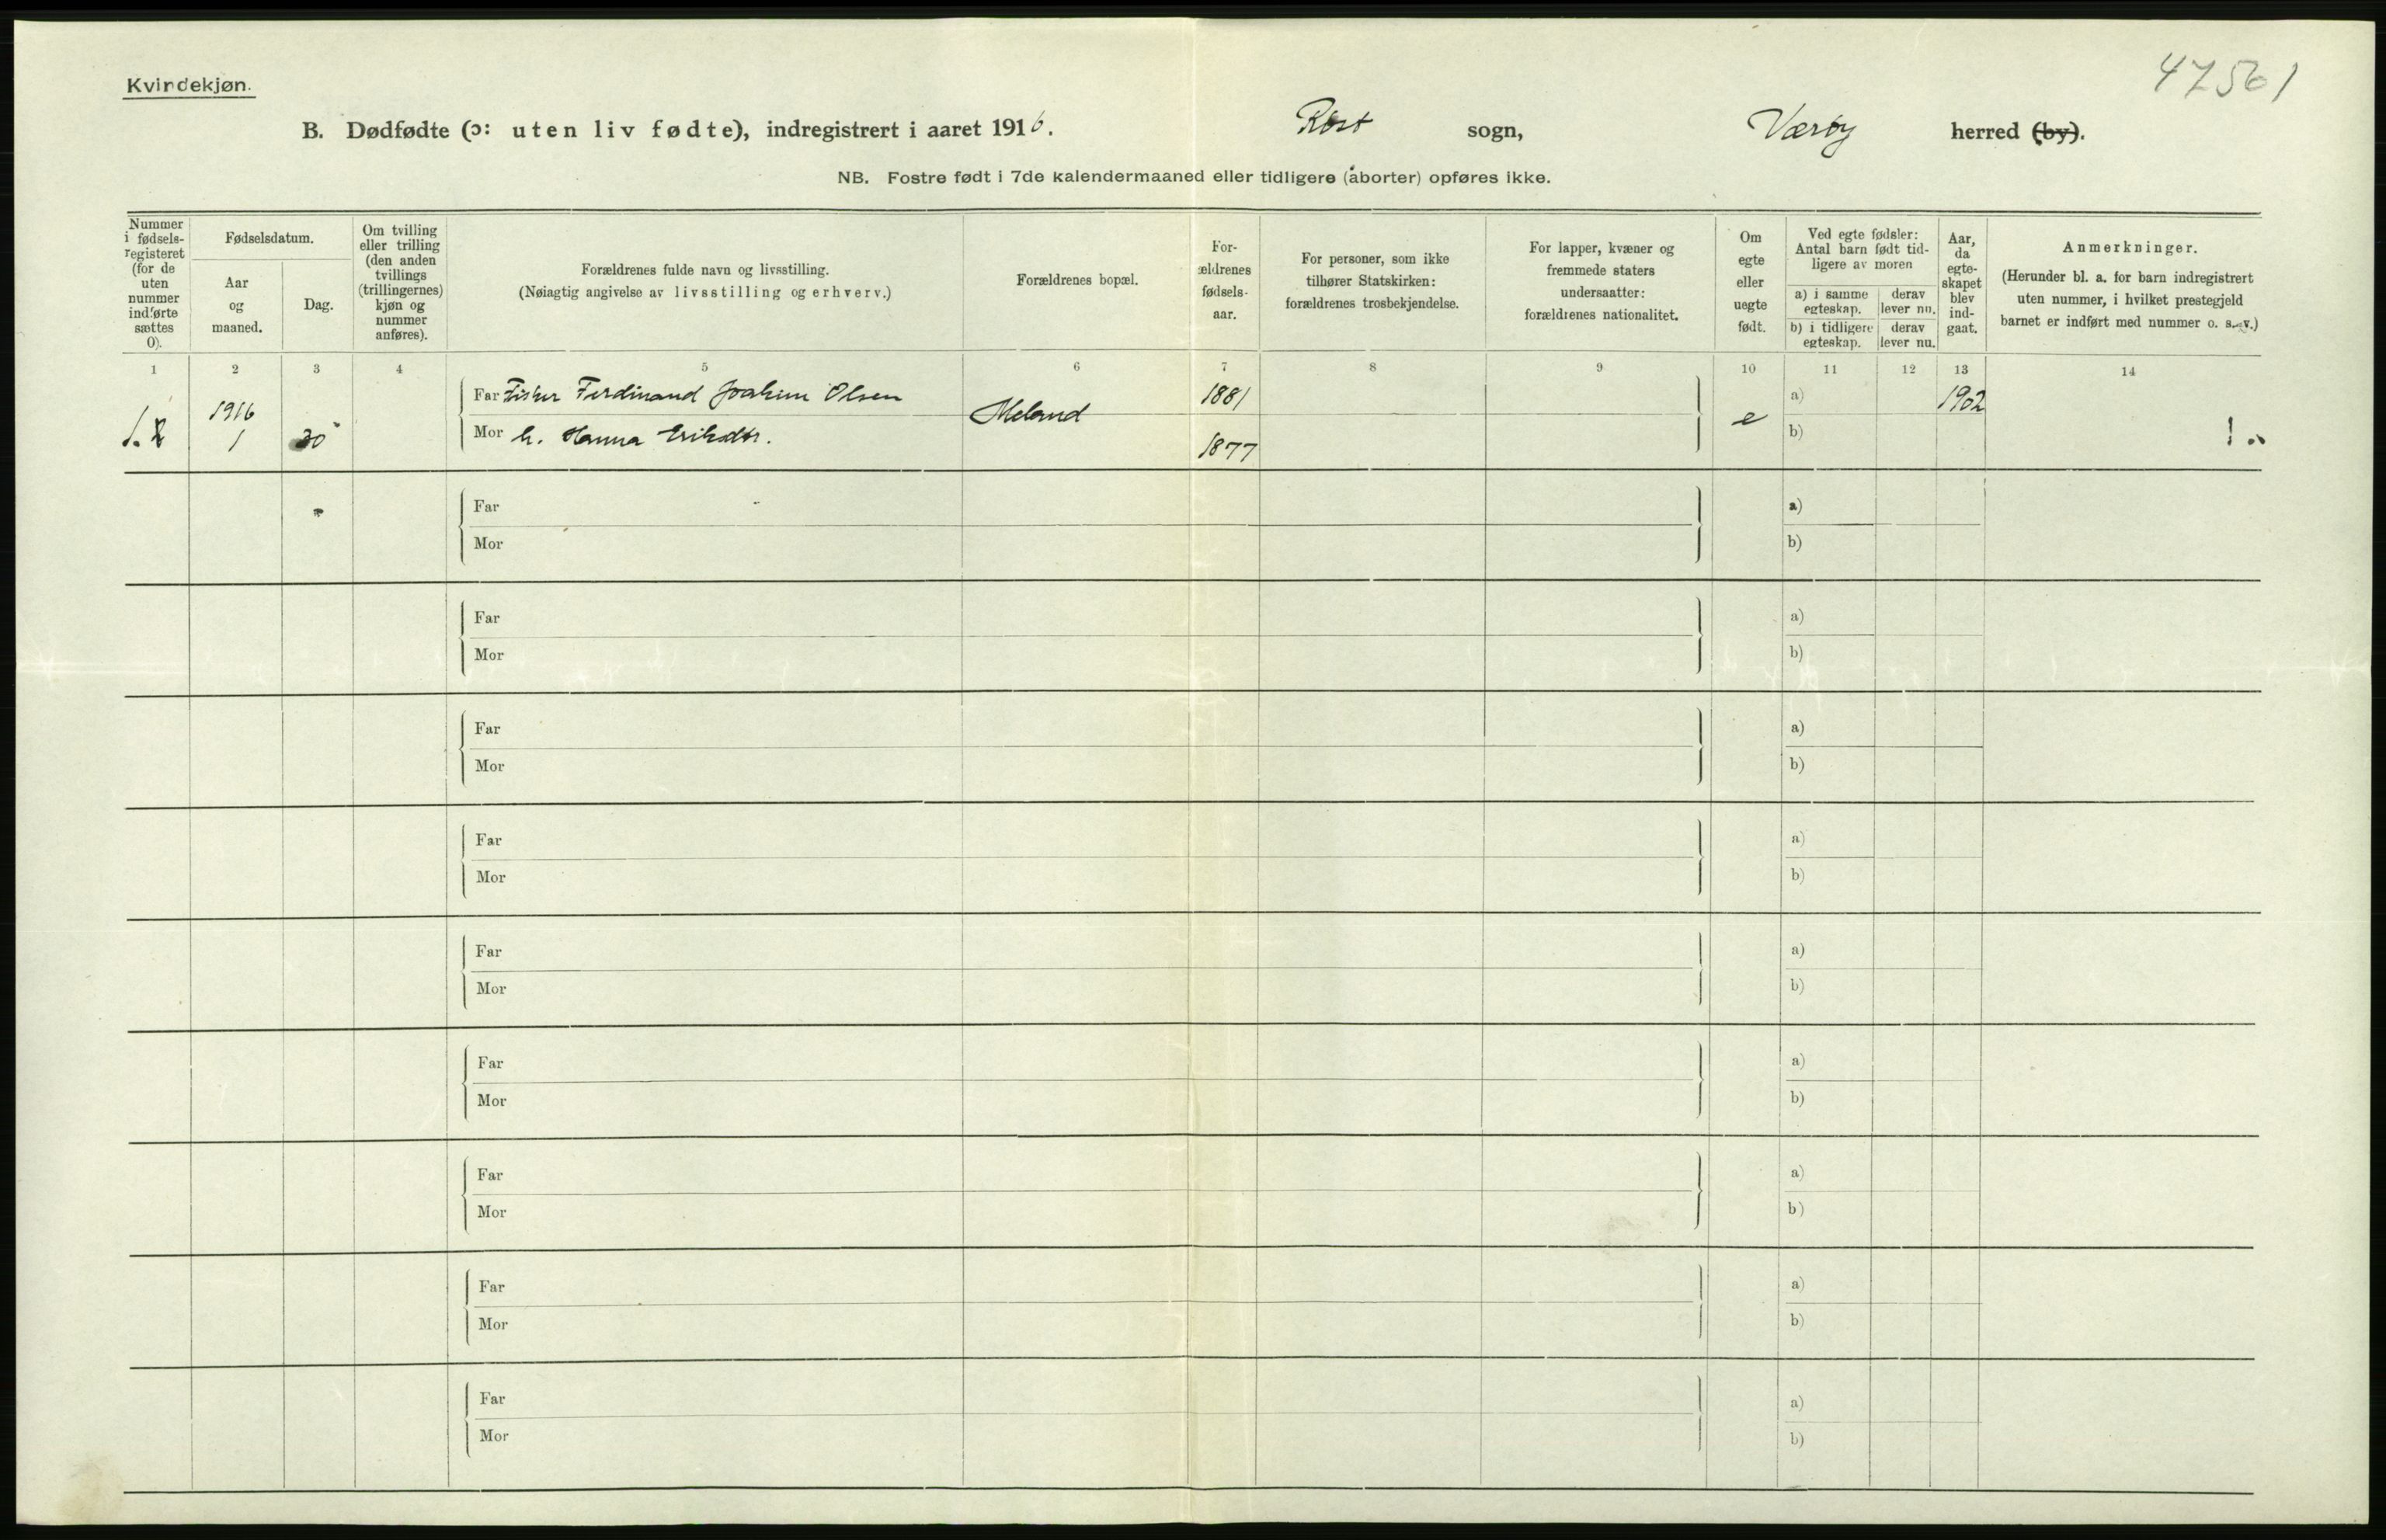 47561
Kvindekjøn.
B. Dødfødte (ɔ: uten liv fødte), indregistrert i aaret 1916. Røst sogn, Værøy herred (by).
NB. Fostre født i 7de kalendermaaned eller tidligere (aborter) opføres ikke.
Nummer
i fødsels-
registeret
(for de
uten
nummer
indførte
sættes
0).
Fødselsdatum.
Aar
og
maaned.
Dag.
Om tvilling
eller trilling
(den anden
tvillings
(trillingernes)
kjøn og
nummer
anføres).
Forældrenes fulde navn og livsstilling.
(Nøiagtig angivelse av livsstilling og erhverv.)
Forældrenes bopæl.
For-
ældrenes
fødsels-
aar.
For personer, som ikke
tilhører Statskirken:
forældrenes trosbekjendelse.
For lapper, kvæner og
fremmede staters
undersaatter:
forældrenes nationalitet.
Om
egte
eller
uegte
født.
Ved egte fødsler:
Antal barn født tid-
ligere av moren
a) i samme
egteskap.
derav
lever nu.
b) i tidligere
egteskap.
derav
lever nu.
Aar,
da
egte-
skapet
blev
ind-
gaat.
Anmerkninger.
(Herunder bl. a. for barn indregistrert
uten nummer, i hvilket prestegjeld
barnet er indført med nummer o. s. v.)
1 2 3 4 5 6 7 8 9 10 11 12 13 14
Far Fisker Ferdinand Joakim Olsen 1881 a) 1902
1916 Meland e
1. 1 30 Mor h. Hanna Eriksdtr. 1877 b) 1
Far a)
Mor b)
Far a)
Mor b)
Far a)
Mor b)
Far a)
Mor b)
Far a)
Mor b)
Far a)
Mor b)
Far a)
Mor b)
Far a)
Mor b)
Far a)
Mor b)